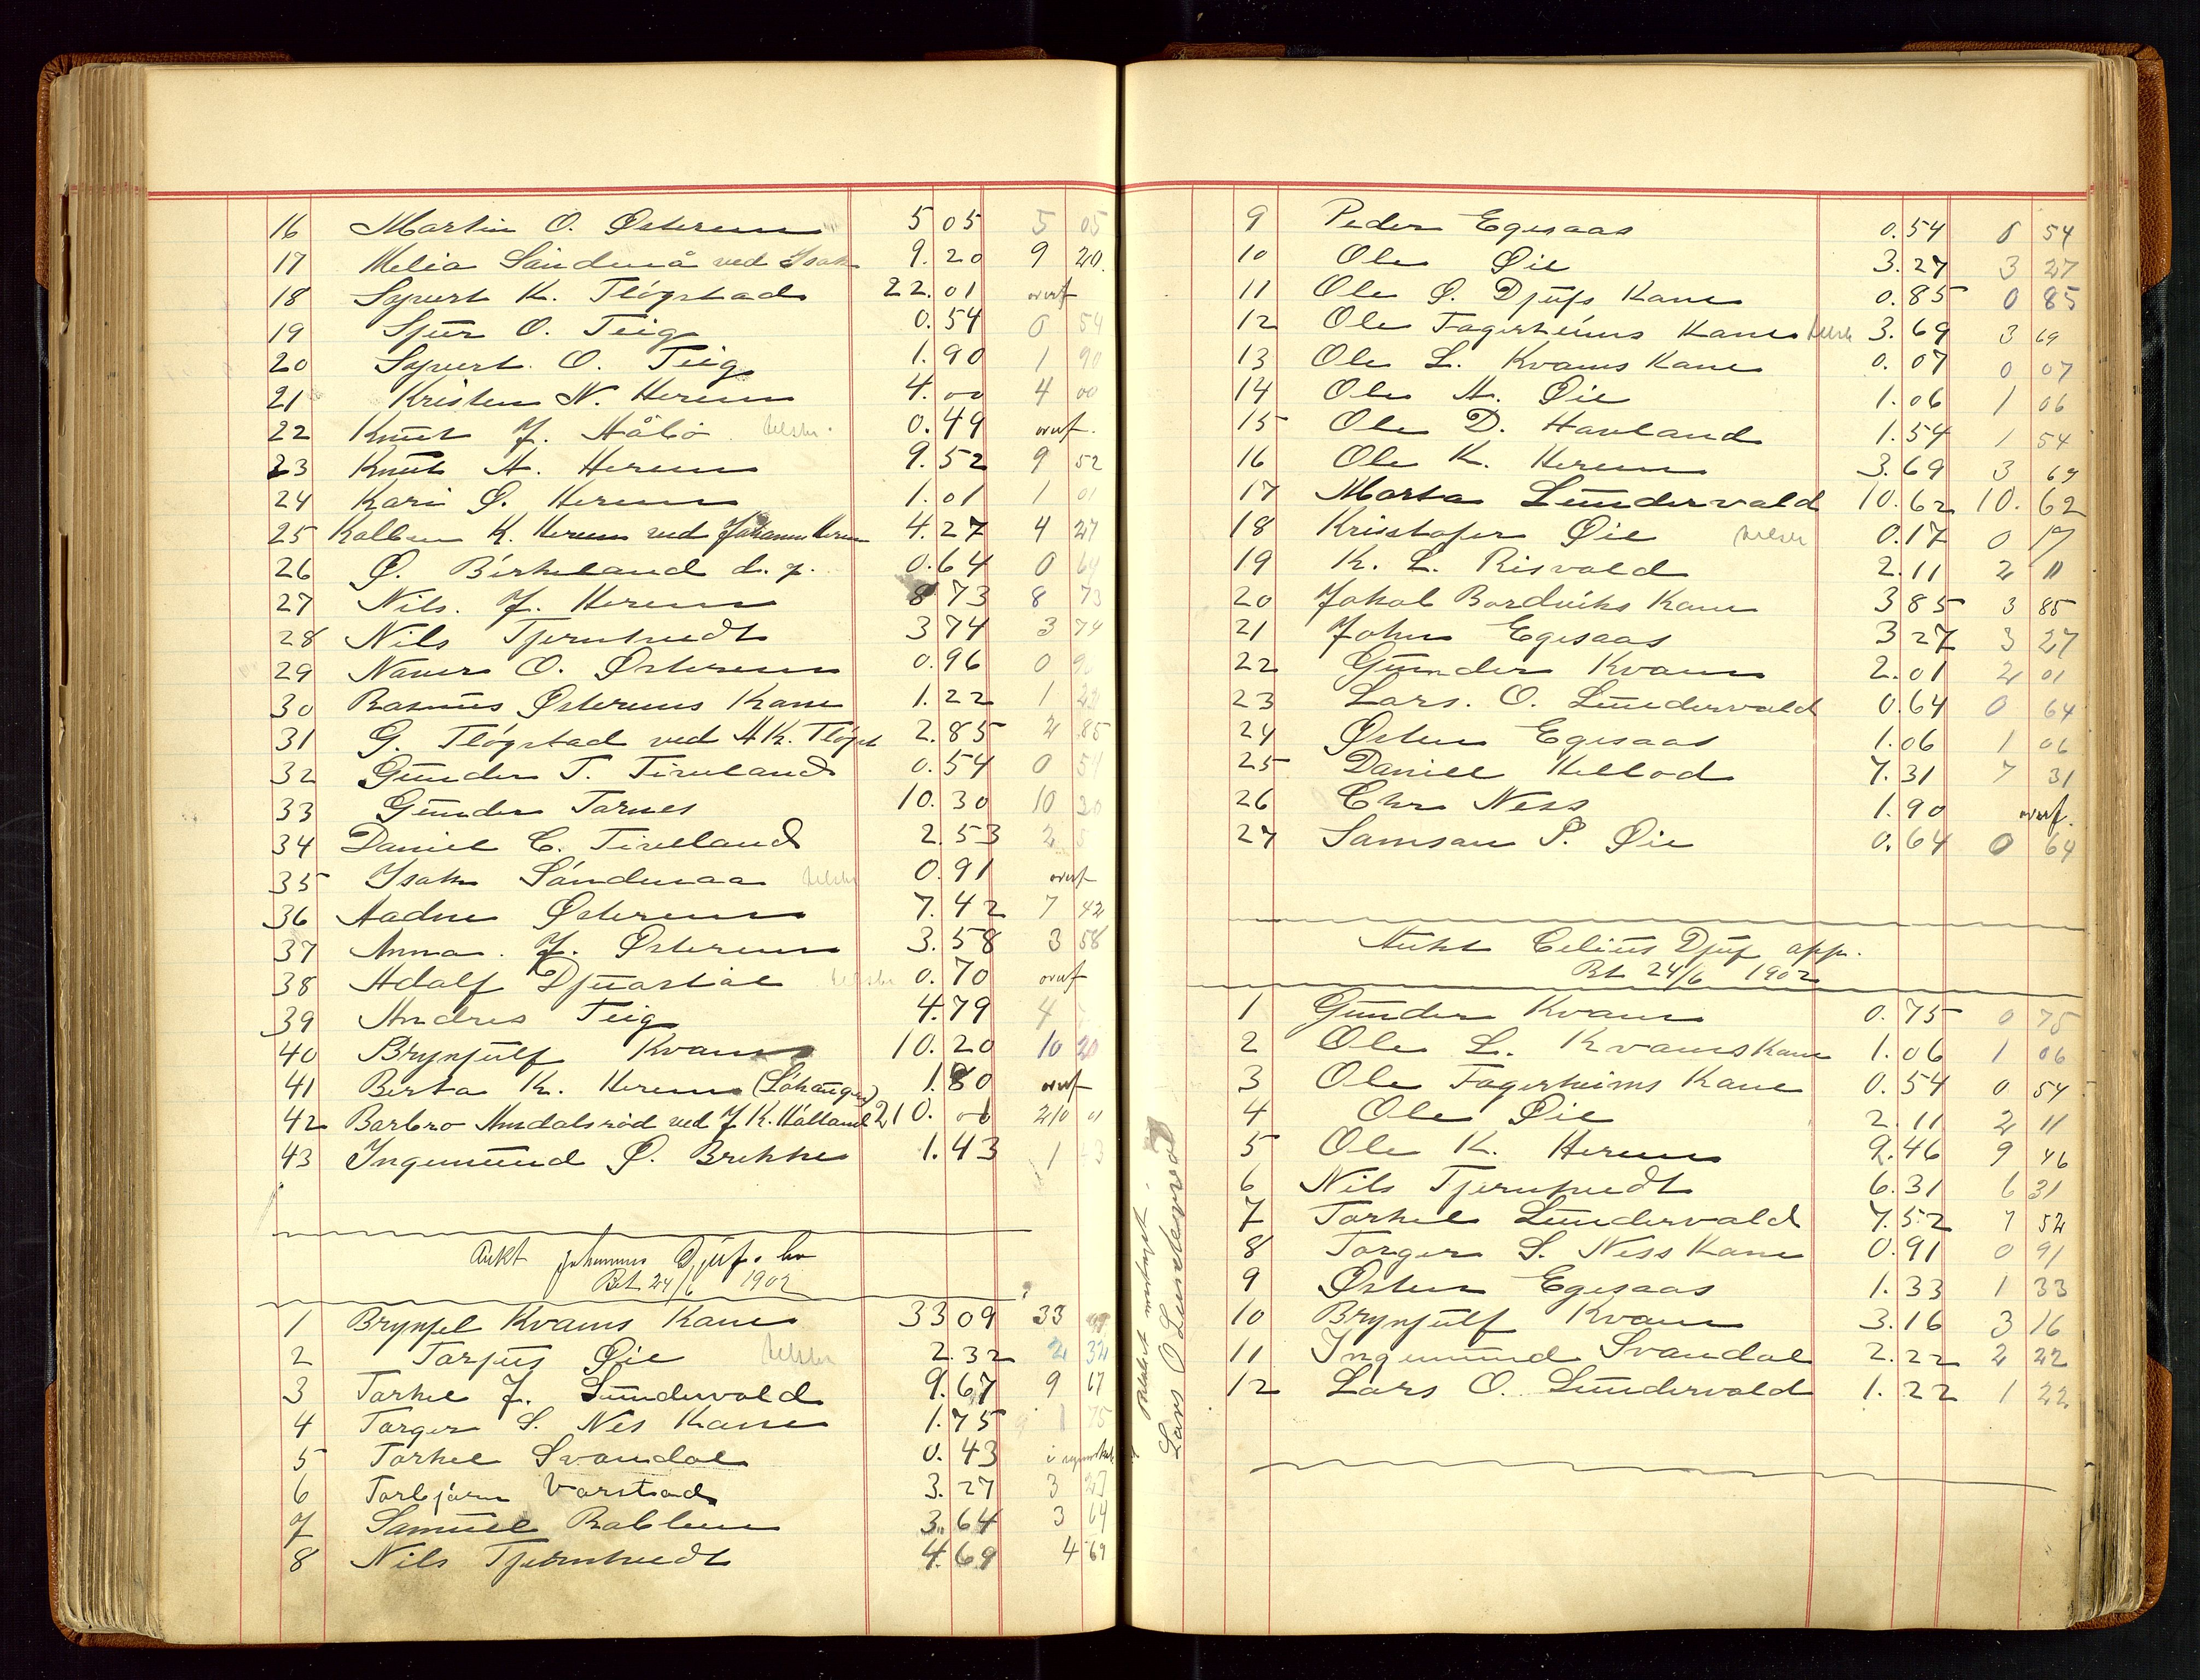 16 Martin O. Østerem 5 05 5 05
17 Melia Sandmå ved Isak 9.20 9 20.
18 Syvert K. Tlögstad 22.01 overf
19 Sjur O. Teig 0.54 0 54
20 Syvert. O. Teig 1.90 1 90
21 Kristen N. Herem 4.00 4 00
22 Knut J. Håbö 0.49 overf.
23 Knut A. Herem 9.52 9 52
24 Kari Ø. Herem 1.01 1 01
25 Kolben K. Herem ved Johannes Herem 4.27 4 27
26 Ø. Birkeland d.y. 0.64 0 64
27 Nils. J. Herem 8 73 8 73
28 Nils Tjernhvedt 3 74 3 74
29 Navers O. Østerem 0.96 0 9
30 Rasmus Østerems Kane 1.22 1 22
31 G. Tlögstad ved A K. Tlögst 2.85 2 85
32 Gunder T. Tireland 0.54 0 54
33 Gunder Tarnes 10.30 10 30
34 Daniel C. Tireland 2.53 2 5
35 Isak Sandmaa 0.91 overf
36 Aadne Østerem 7.42 7 42
37 Anna. J. Østerem 3.58 3 58
38 Adolf Djuastøl 0.70 overf
39 Andres Teig 4.79 4
40 Brynjulf Kvam 10.20 10 20
41 Berta K. Herem (Löhaugen) 1.80 overf
42 Barbro Amdalsröd ved J K. Hålland 210.01 210 01
43 Ingemund Ø. Brekke 1.43 1 3
Aukt Johannes Djúf. bo
Bet 24/6 1902
1 Brynjel Kvams Kane 33 09 33 09
2 Tarjus Øie 2.32 2 32
3 Torkel J. Lundervold 9.67 9 67
4 Torger S. Nes Kane 1.75 1 75
5 Torkel Svandal 0.43
6 Torbjörn Varstad 3.27 3 27
7 Samuel Rablem 3.64 3 64
8 Nils Tjernhvedt 4.69 4 69
Lars O Lundervold
9 Peder Egesaas 0.54 0 54
10 Ole Øie 3.27 3 27
11 Ole Ø. Djufs Kane 0.85 0 85
12 Ole Fagerheims Kane 3.69 3 69
13 Ole L. Kvams Kane 0.07 0 07
14 Ole A. Øie 1.06 1 06
15 Ole D. Havland 1.54 1 54
16 Ole K. Herem 3.69 3 69
17 Marta Lundervald 10.62 10.62
18 Kristofer Øie 0.17 0 17
19 K. L. Risvold 2.11 2 11
20 Jakob Bordviks Kane 3 85 3 85
21 John Egesaas 3 27 3 27
22 Gunder Kvam 2.01 2 01
23 Lars. O. Lundervald 0.64 0 64
24 Østen Egesaas 1.06 1 06
25 Daniel Kellod 7.31 7 31
26 Chr Ness 1.90 overf.
27 Samson P. Øie 0.64 0 64
Aukt Celius Djuf opp.
Bet 24/6 1902
1 Gunder Kvam 0.75 0 75
2 Ole L. Kvams Kane 1.06 1 06
3 Ole Fagerheims Kane 0.54 0 54
4 Ole Øie 2.11 2 11
5 Ole K. Herem 9.46 9 46
6 Nils Tjernhvedt 6.31 6 31
7 Torkel Lundervald 7.52 7 52
8 Torger S. Ness Kane 0.91 0 91
9 Østen Egesaas 1.33 1 33
10 Brynjulf Kvam 3.16 3 16
11 Ingemund Svandal 2.22 2 22
12 Lars O. Lundervold 1.22 1 22